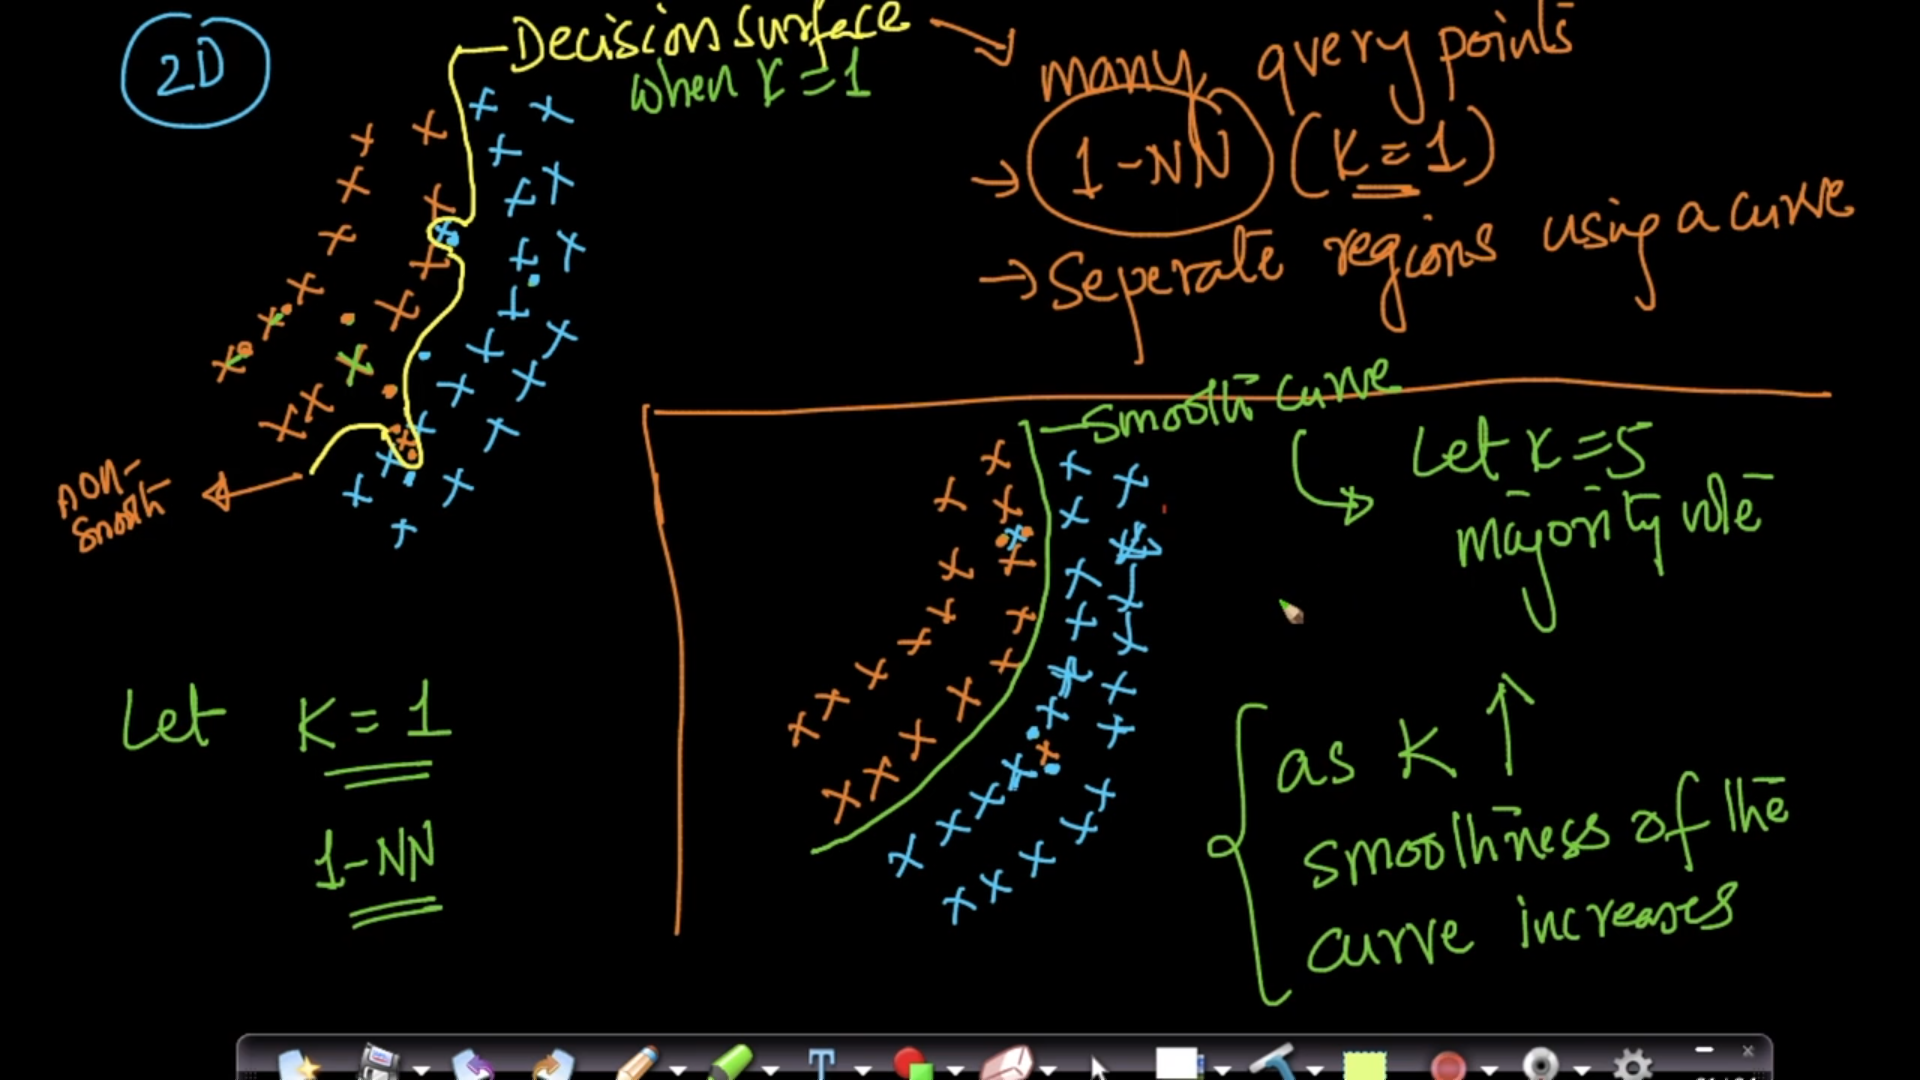 2D
Decision surface
when K=1
many query points
→ 1-NN (K=1)
→ Seperate regions using a curve
non-
smooth
Let K=1
1-NN
smooth curve
Let K=5
majority vote
as K ↑
smoothness of the
curve increases